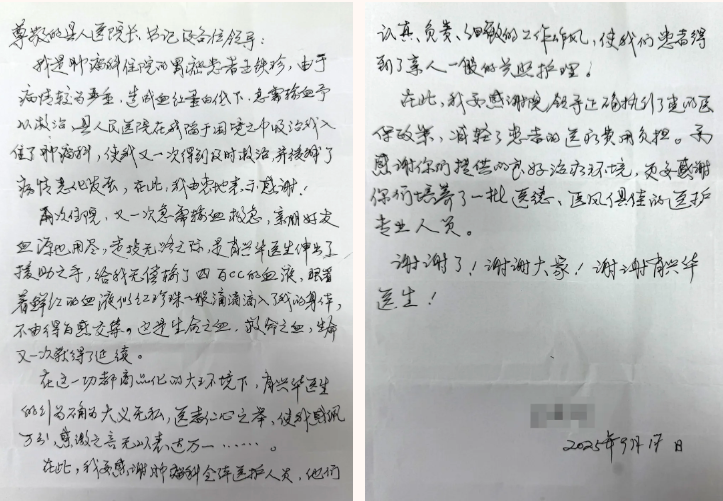 尊敬的县人医院长、书记及各位领导：
我是肿瘤科住院的胃癌患者王铁珍，由于
病情较为严重，造成血红蛋白低下，急需输血予
以救治，县人民医院在我陷于困境之中收治我入
住了肿瘤科，使我又一次得到及时救治，并缓解了
病情恶化发展，在此，我由衷地表示感谢！
再次住院，又一次急需输血救急，亲朋好友
血源也用尽，走投无路之际，是肖兴华医生伸出了
援助之手，给我无偿输了四百CC的血液，眼看
着鲜红的血液似红珍珠一般滴滴滴入了我的身体，
不由得百感交集。这是生命之血，救命之血，生命
又一次获得了延续。
在这一切都商品化的大环境下，肖兴华医生
的行为确为大义无私，医者仁心之举，使我感佩
万分，感激之言无以表达万一……。
在此，我要感谢肿瘤科全体医护人员，他们
认真、负责、细致的工作作风，使我们患者得
到了亲人一般的关照护理！
在此，我要感谢院领导正确执行了党的医
保政策，减轻了患者的医疗费用负担。更
感谢你们提供的良好治疗环境，更要感谢
你们培养了一批医德、医风俱佳的医护
专业人员。
谢谢了！谢谢大家！谢谢肖兴华
医生！
2025年9月17日